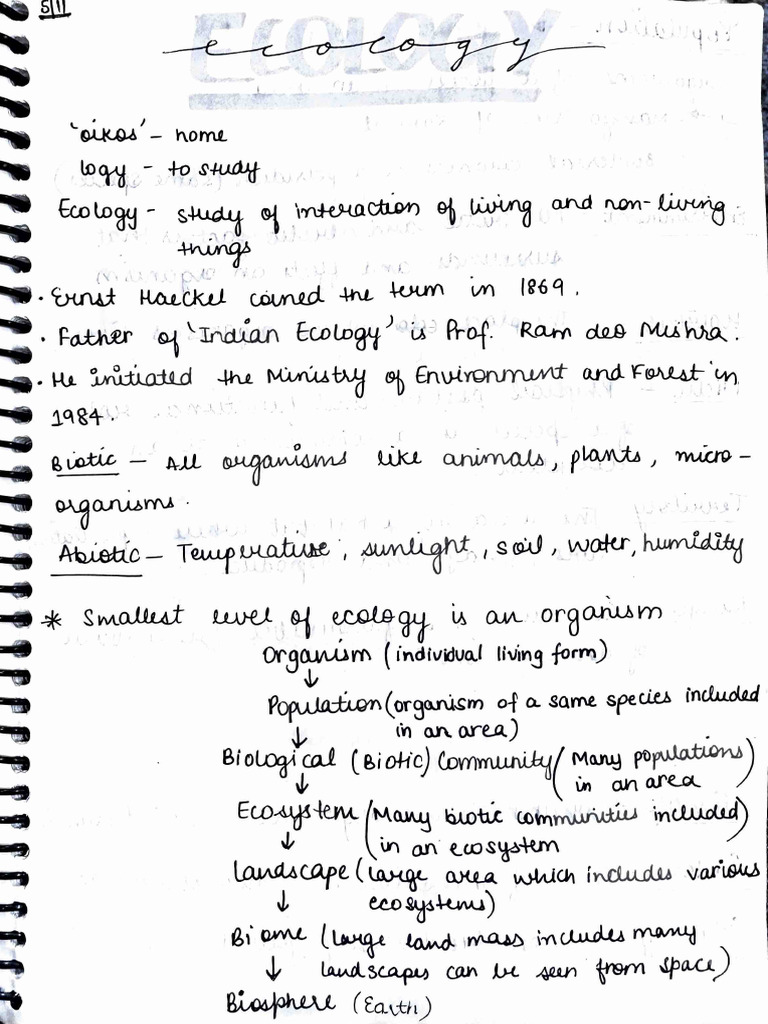 5/11
Ecology
ecology
'oikos' – home
logy – to study
Ecology - study of interaction of living and non-living
things
• Ernst Haeckel coined the term in 1869.
• Father of 'Indian Ecology' is Prof. Ram deo Mishra.
• He initiated the Ministry of Environment and Forest in
1984.
Biotic – All organisms like animals, plants, micro-
organisms.
Abiotic – Temperature, sunlight, soil, water, humidity
* Smallest level of ecology is an organism
Organism (individual living form)
↓
Population (organism of a same species included
in an area)
↓
Biological (Biotic) Community (Many populations
in an area)
↓
Ecosystem (Many biotic communities included
in an ecosystem)
↓
Landscape (large area which includes various
ecosystems)
↓
Biome (large land mass includes many
landscapes can be seen from space)
↓
Biosphere (Earth)